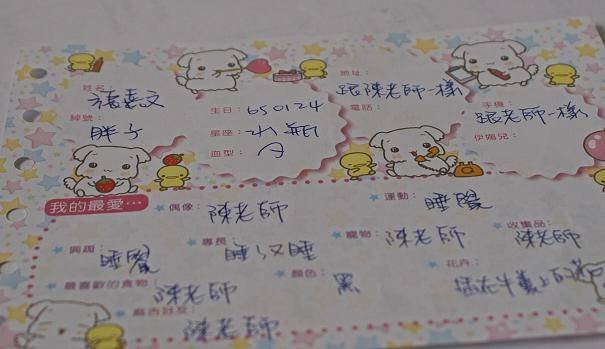 姓名：
綽號： 胖子
生日： 650124
星座： 水瓶
血型：
地址： 跟陳老師一樣
電話：
手機： 跟老師一樣
伊媚兒：
我的最愛…
偶像： 陳老師
運動： 睡覺
興趣： 睡覺
專長： 睡又睡
寵物： 陳老師
收集品： 陳老師
最喜歡的食物： 陳老師
顏色： 黑
花卉：
陳老師